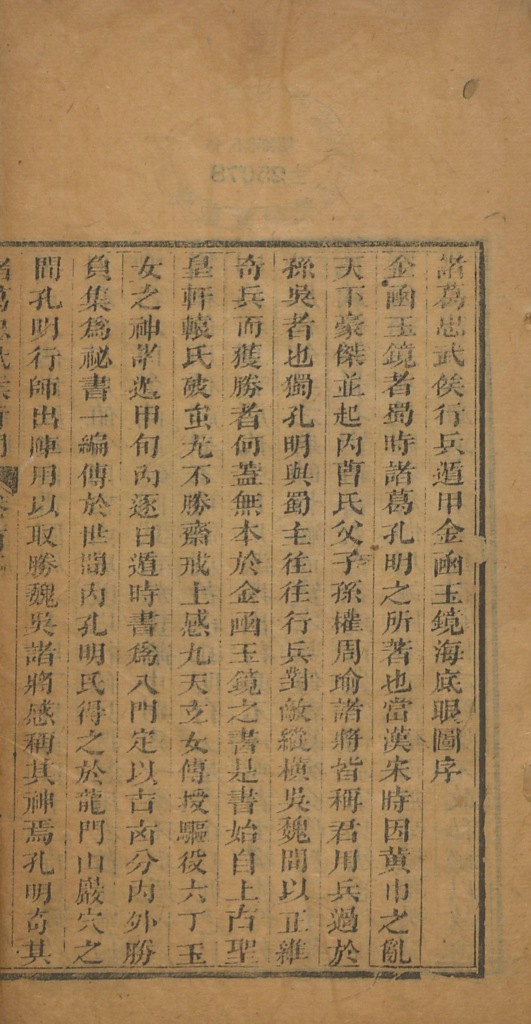 諸葛忠武侯行兵遁甲金函玉鏡海底眼圖序
金函玉鏡者蜀時諸葛孔明之所著也當漢末時因黃巾之亂
天下豪傑並起內曹氏父子孫權周瑜諸將皆稱君用兵過於
孫吳者也獨孔明與蜀主往往行兵對敵縱橫吳魏間以正雜
奇兵而獲勝者何蓋無本於金函玉鏡之書是書始自上古聖
皇軒轅氏破蚩尤不勝齋戒上感九天玄女傳授驅役六丁玉
女之神諸遁甲旬內逐日遁時書爲八門定以吉凶分內外勝
負集爲祕書一編傳於世間內孔明氏得之於龍門山巖穴之
間孔明行師出陣用以取勝魏吳諸將感稱其神焉孔明奇其